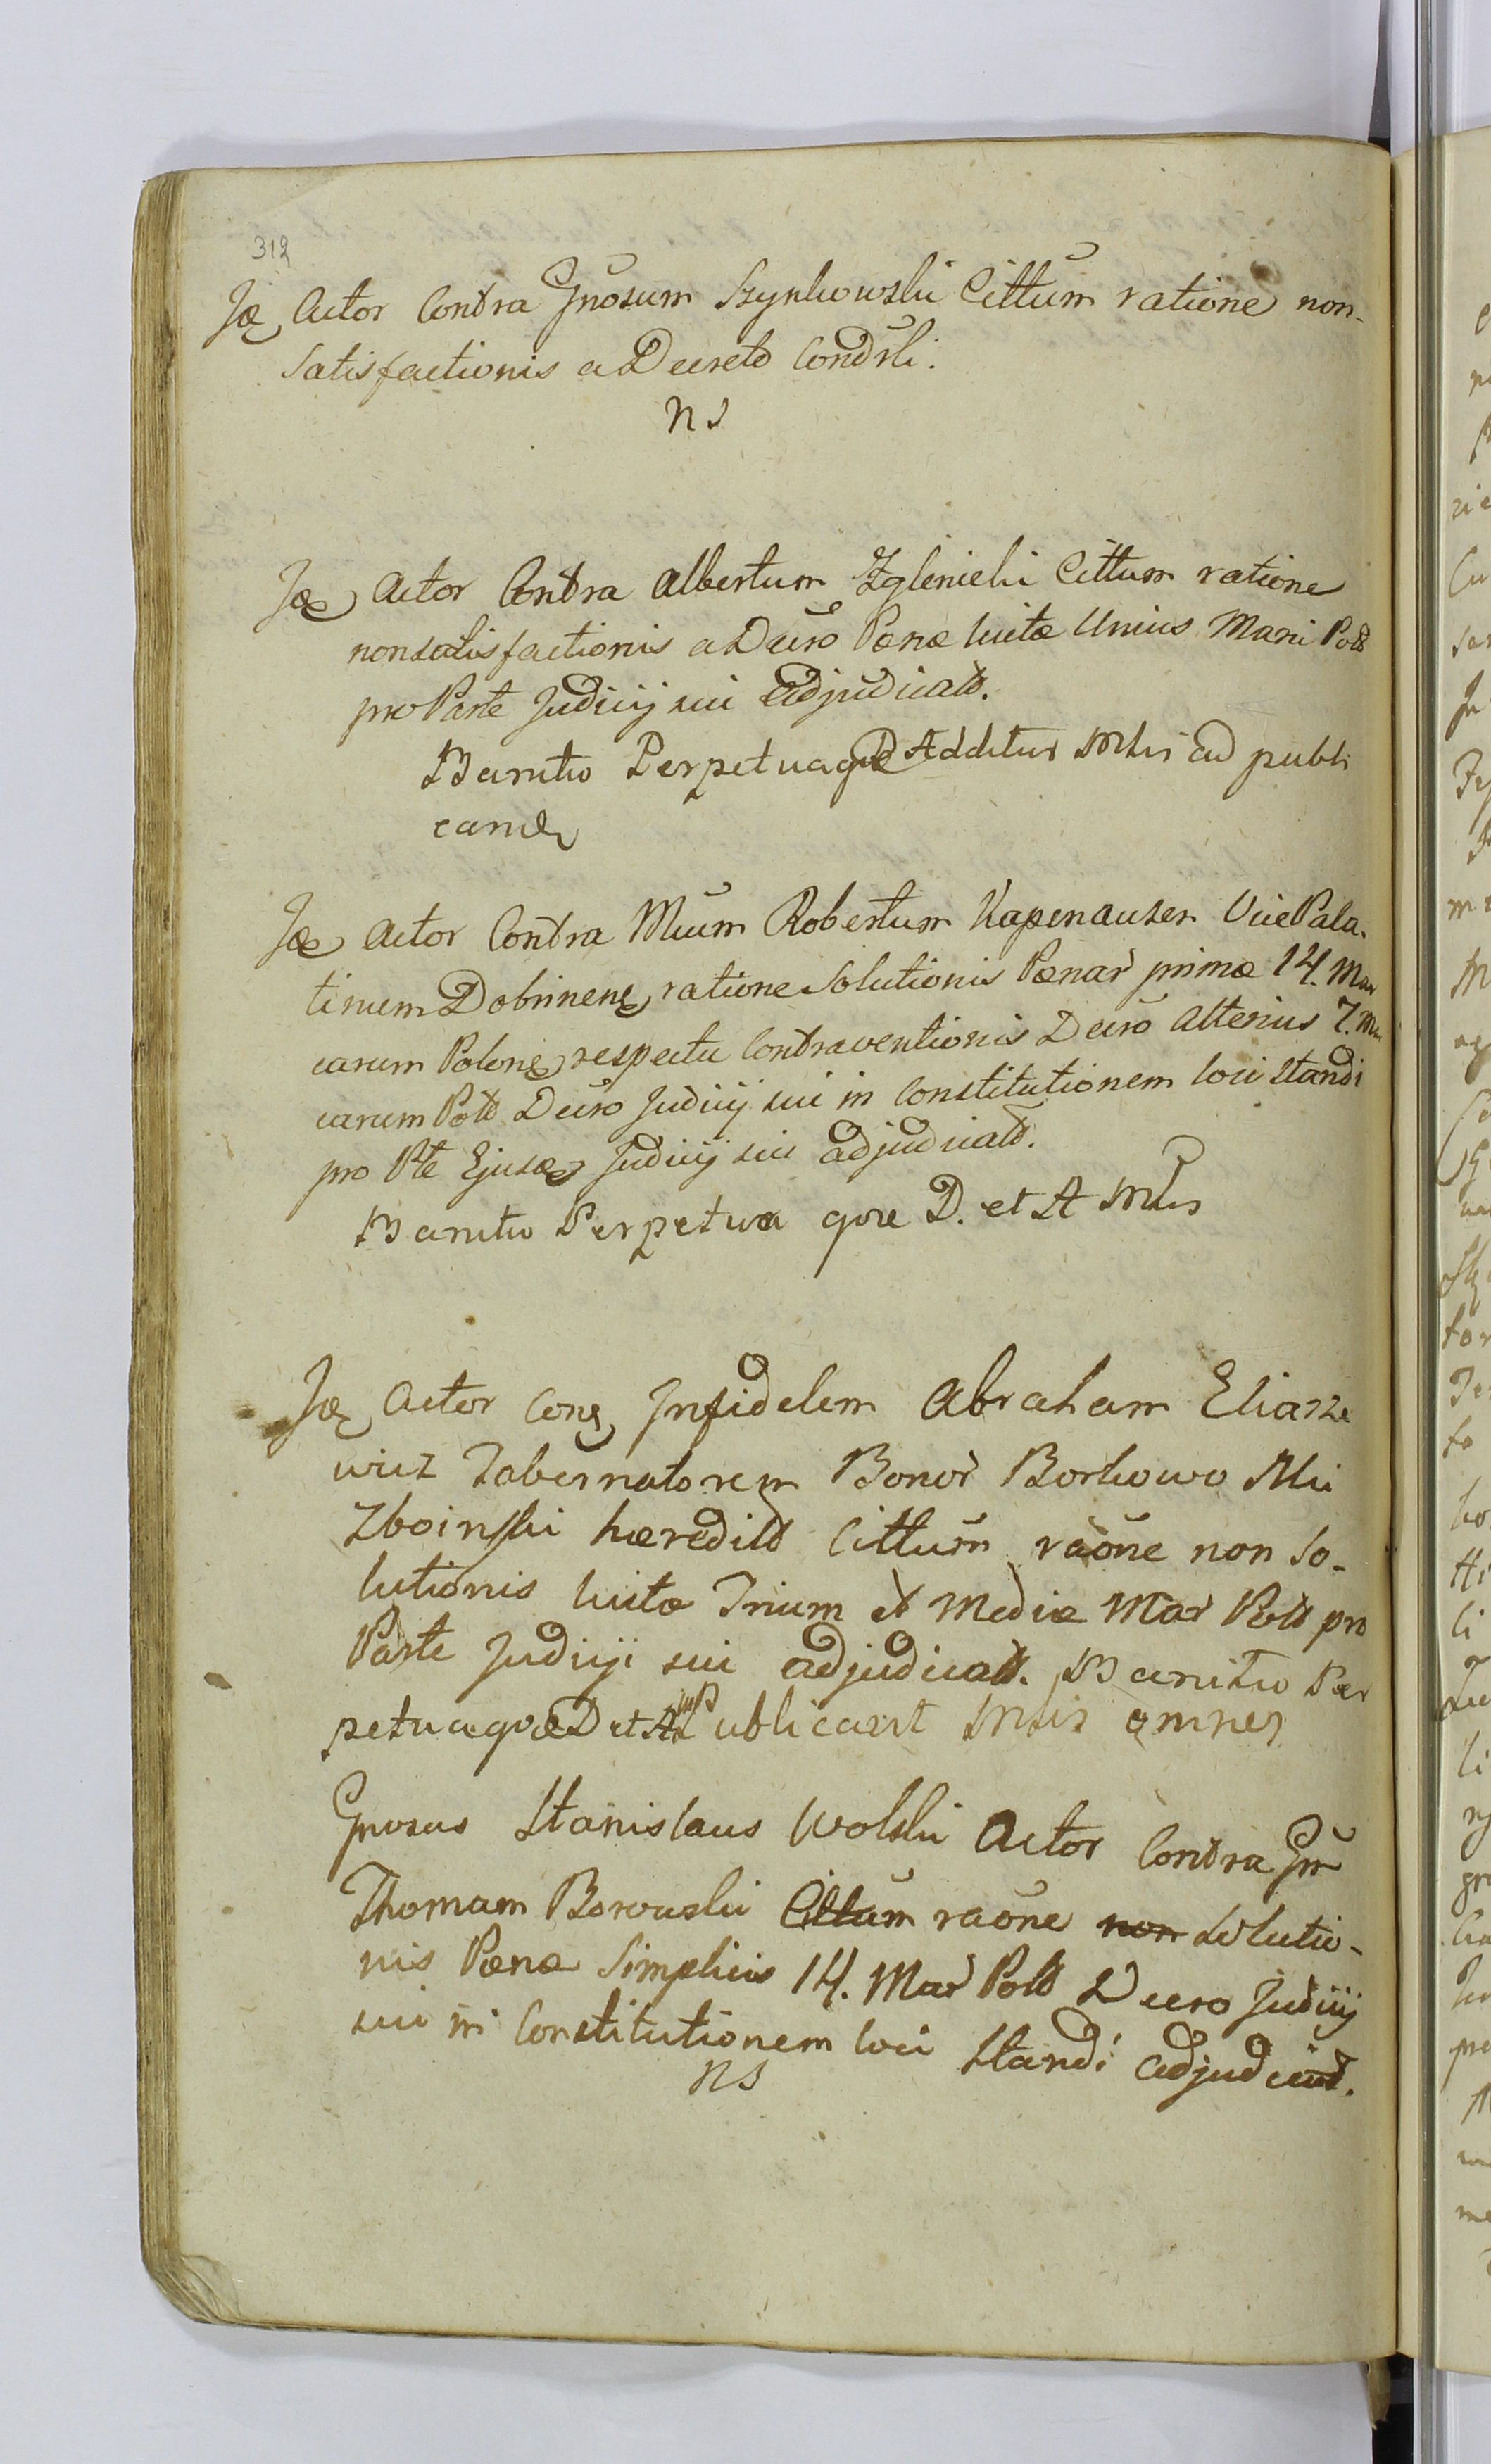 312
Actor Contra Gnosum Szynkowski Cittum ratione non-
satisfactionis a Decreto Condrli.
NS
Actor Contra Albertum Zglenicki Cittum ratione
nonsatisfactionis a Decro Pænæ luitæ Unius Mari Poll
pro Parte Judicij sui adjudicatt.
Banitio Perpetuaque Additur Mtis ad publi
cand
Actor Contra Mcum Robertum Kapenauzen Vice Pala-
tinum Dobrinens ratione Solutionis Pænar primæ 14. Mar
carum Polone respectu Contraventionis Decro Alterius 7. Mar
carum Poll Decro Judicij sui in Constitutionem loci standi
pro Pte Ejusd Judicij sui adjudicatt.
Banitio Perpetua qve D. et A Mtis
Actor Cong Infidelem Abraham Eliasze
wicz Tabernatorem Bonor Borkowo Mci
Zboinski hæredit Cittum raone non So-
lutionis luitæ Trium et Mediæ Mar Poll pro
Parte Judicij sui adjudicatt. Banitio Per
petuaqve D et A Publicant Mtis omnes
Gnosus Stanislaus Wolski Actor Contra Gm
Thomam Borowski Cittum raone non Solutio-
nis Pænæ Simplicis 14. Mar Poll Decro Judicij
sui in Constitutionem loci Standi adjudicat.
NS